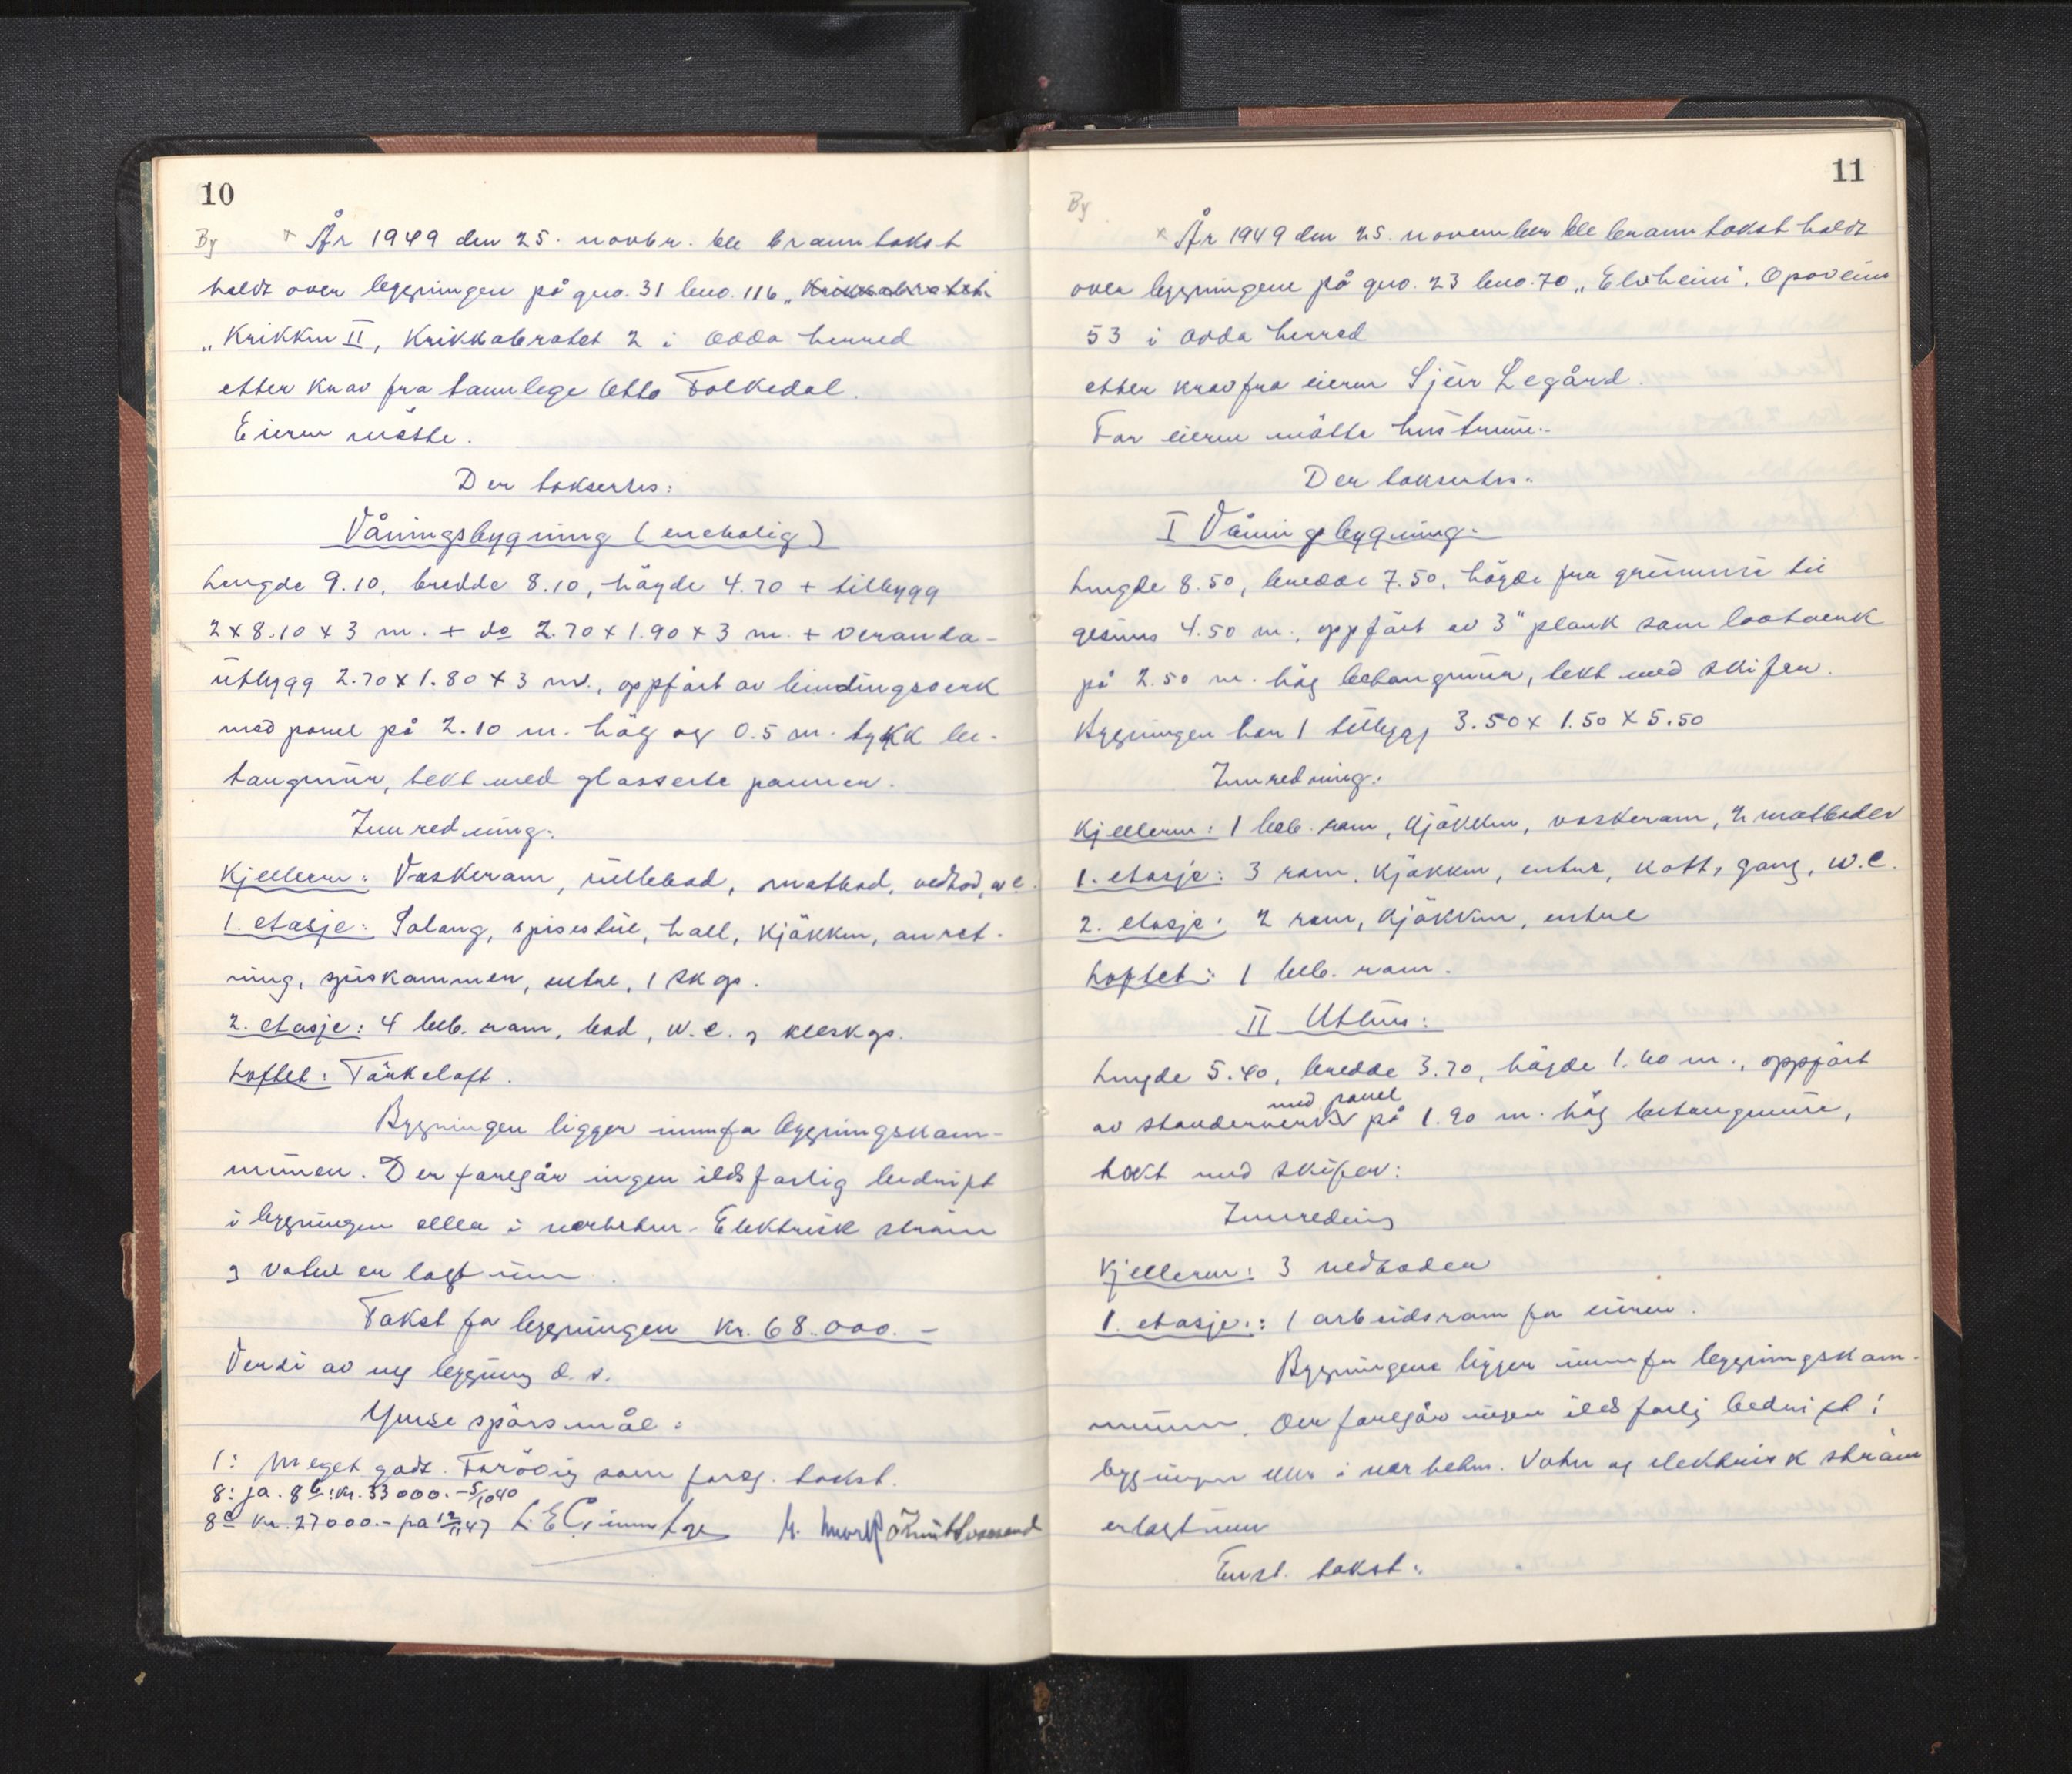 10
By × År 1949 den 25. novbr. ble branntakst
holdt over bygningen på gno. 31 bno. 116 „Krikkabrotet
„Krikken II, Krikkabrotet 2 i Odda herred
etter krav fra tannlege Otto Folkedal.
Eieren møtte.
Der taksertes:
Våningsbygning (enebolig)
Lengde 9.10, bredde 8.10, høyde 4.70 + tilbygg
2 x 8.10 x 3 m. + do 2.70 x 1.90 x 3 m. + veranda-
utbygg 2.70 x 1.80 x 3 m., oppført av bindingsverk
med panel på 2.10 m. høg og 0.5 m. tykk be-
tongmur, tekt med glasserte panner.
Innredning:
Kjelleren: Vaskerom, rullebod, matbod, vedbod, w c.
1. etasje: Salong, spisestue, hall, kjøkken, anret-
ning, spiskammer, entre, 1 skap.
2. etasje: 4 beb. rom, bad, w.c. og kleskap.
Loftet: Tørkeloft.
Bygningen ligger innenfor bygningskom-
munen. Der foregår ingen ildsfarlig bedrift
i bygningen eller i nærheten. Elektrisk strøm
og vatn er lagt inn.
Takst for bygningen Kr. 68.000.-
Verdi av ny bygning d. s.
Ymse spørsmål:
1: Meget godt. Forøvrig som foreg. takst.
8: ja. 8 b: kr. 33000.- 5/10 40
8 c kr. 27000.- på 12/11 47
11
By
× År 1949 den 25. november ble branntakst holdt
over bygningene på gno. 23 bno. 70 „Elvheim", Opoveien
53 i Odda herred
etter krav fra eieren Sjur Legård.
For eieren møtte hustruen.
Der taksertes:
I Våningsbygning:
Lengde 8.50, bredde 7.50, høyde fra grunnmur til
gesims 4.50 m., oppført av 3" plank som lostverk
på 2.50 m. høg betongmur, tekt med skifer.
Bygningen har 1 tilbygg 3.50 x 1.50 x 5.50
Innredning:
Kjelleren: 1 beb. rom, kjøkken, vaskerom, 2 matboder
1. etasje: 3 rom, kjøkken, entre, kott, gang, w.c.
2. etasje: 2 rom, kjøkken, entre
Loftet: 1 beb. rom.
II Uthus:
Lengde 5.40, bredde 3.70, høyde 1.60 m., oppført
med panel
av stenderverk på 1.90 m. høg betongmur,
tekt med skifer:
Innredning
Kjelleren: 3 vedboder
1. etasje: 1 arbeidsrom for eieren.
Bygningene ligger innenfor bygningskom-
munen. Der foregår ingen ildsfarlig bedrift i
bygningen eller i nærheten. Vatn og elektrisk strøm
er lagt inn
Enst. takst: